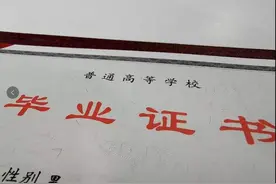 普通高等学校
毕业证书
性别